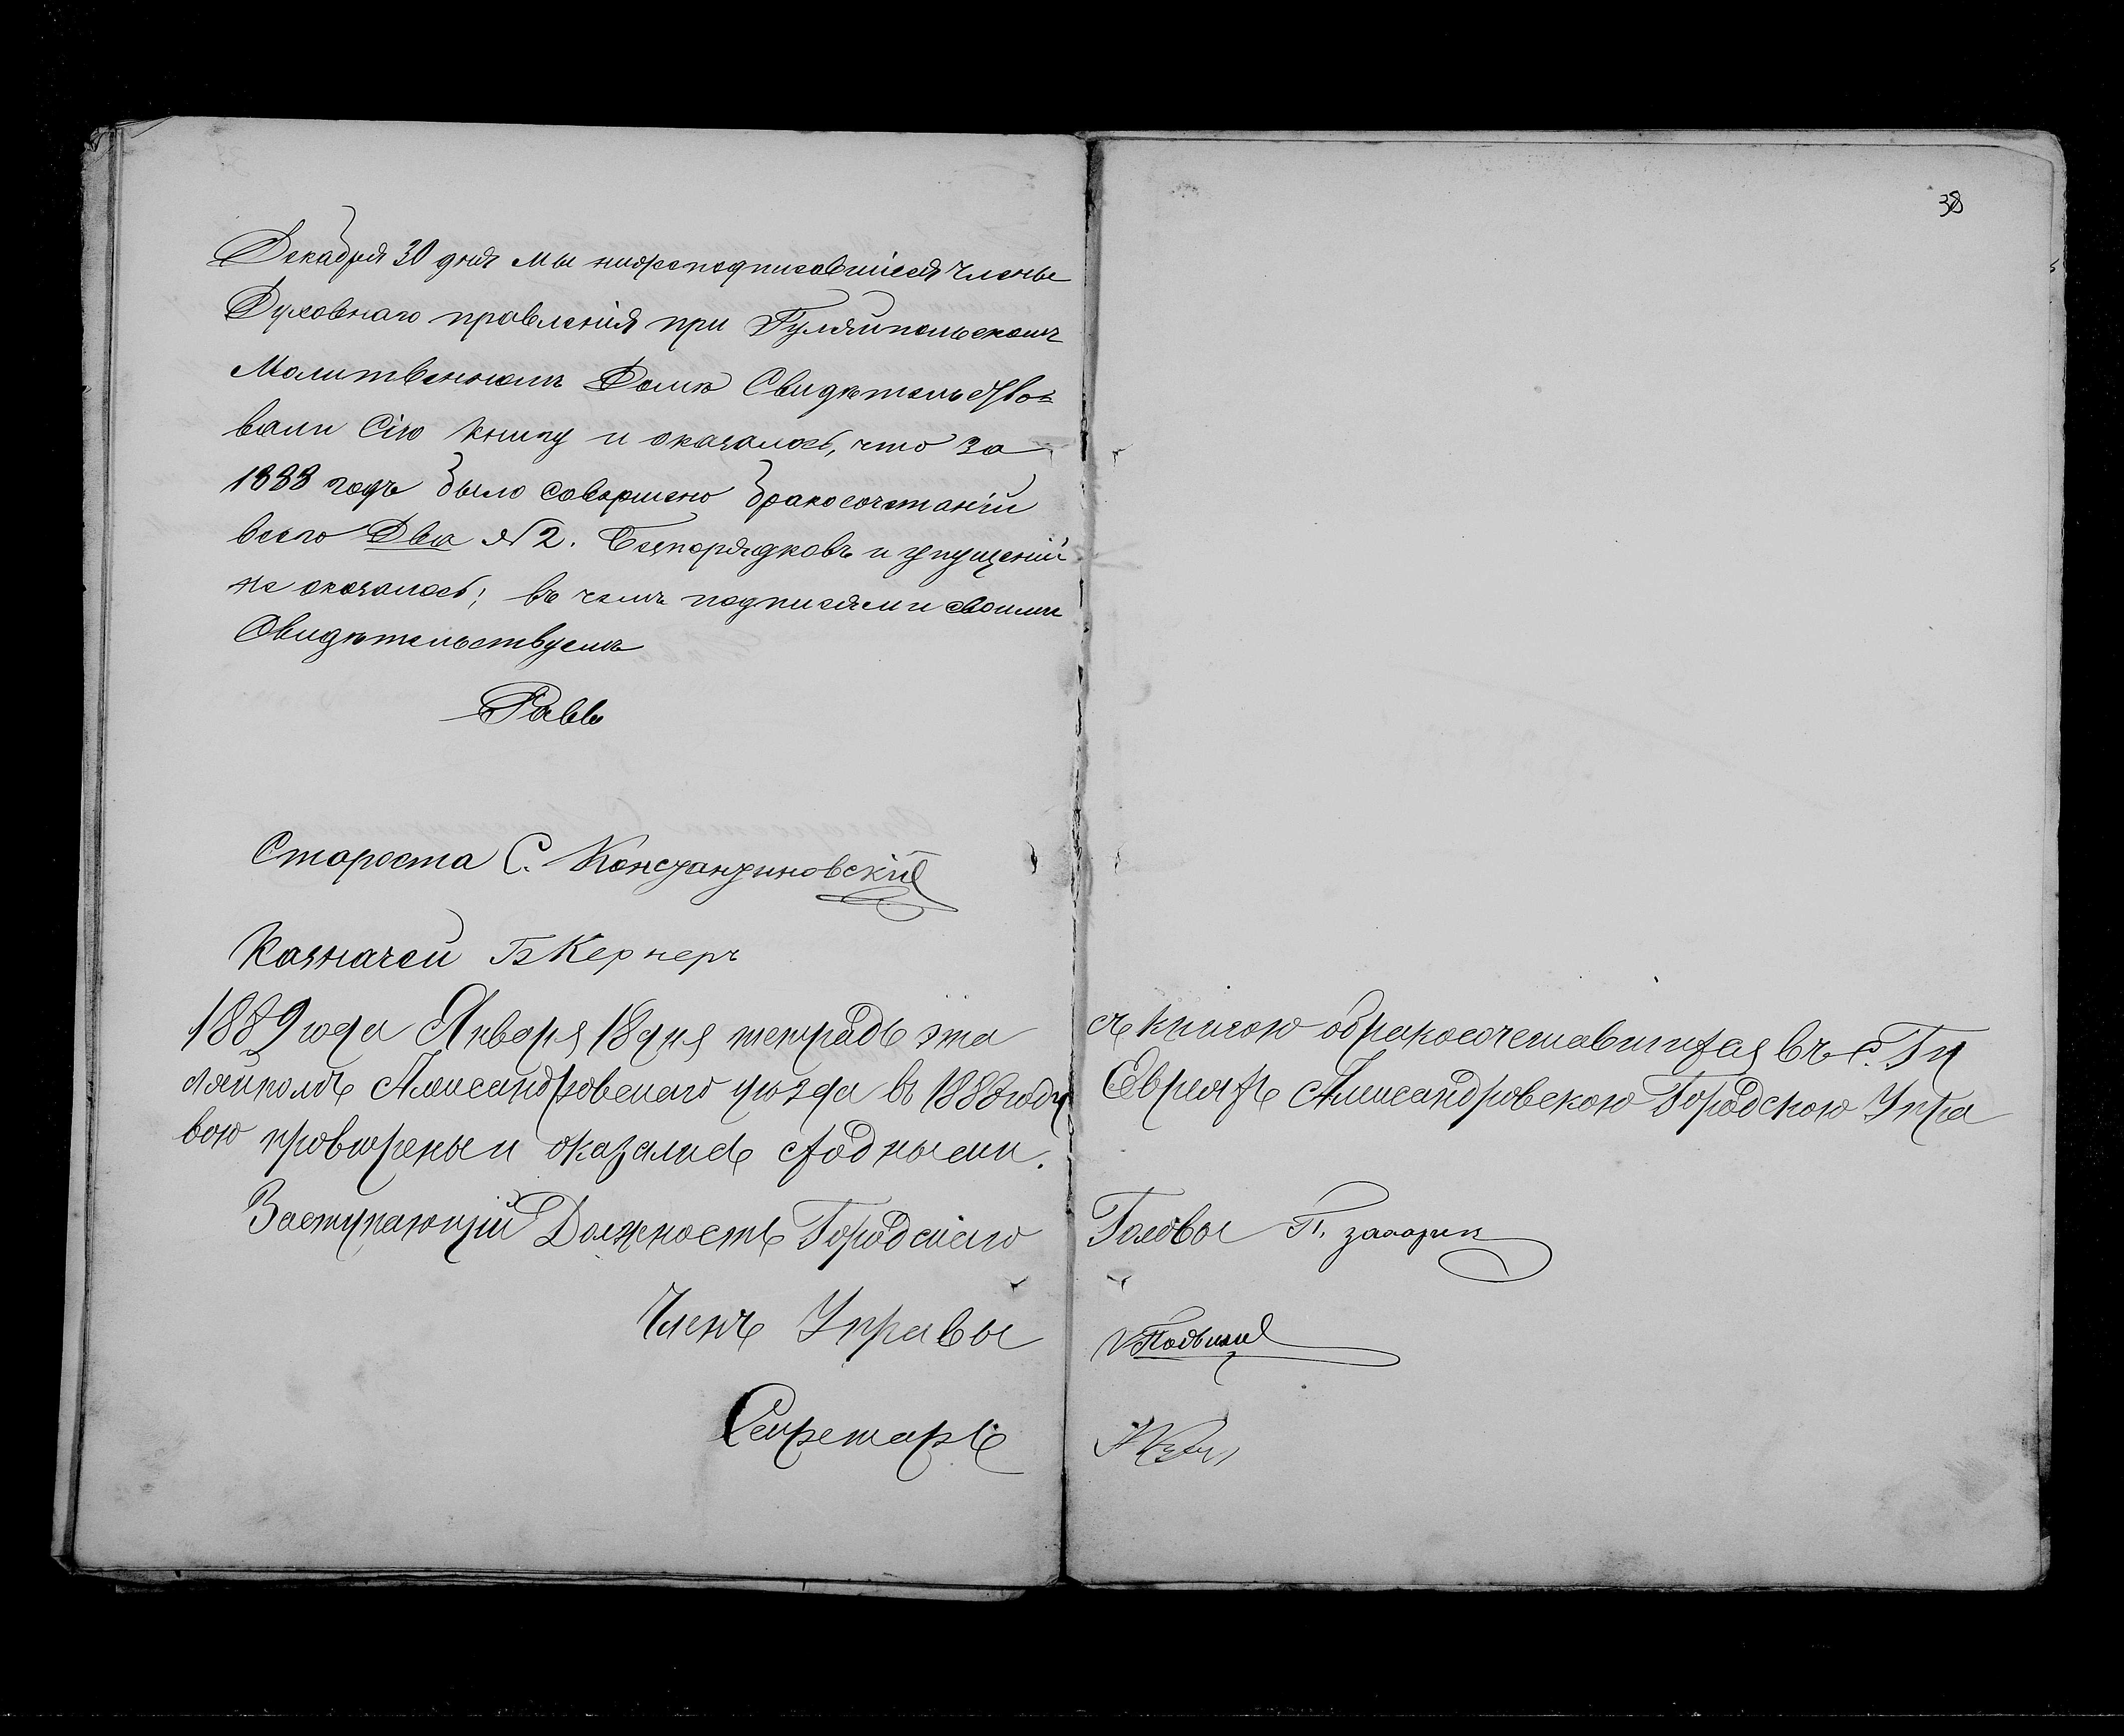 38
Декабря 30 дня мы нижеподписавшіеся члены
Духовнаго правленія при Гуляйпольскомъ
Молитвенномъ Домѣ Свидѣтельство=
вали Сію книгу и оказалось, что за
1888 годъ было совершено бракосочетаній
всего Два № 2. Безпорядковъ и упущеній
не оказалось; въ чемъ подписями своими
Свидѣтельствуемъ
Равв
Староста С. Константиновскій
Казначей Б Кернеръ
1889 года Января 18 дня тетрадь эта съ книгою обракосочетавшихся въ с. Гу
ляйполѣ Александровскаго уѣзда въ 1888 году Евреяхъ Александровскою Городскою Упра
вою провѣрены и оказались сходными.
Заступающій Должность Городскаго Головы П.
Членъ Управы
Секретарь